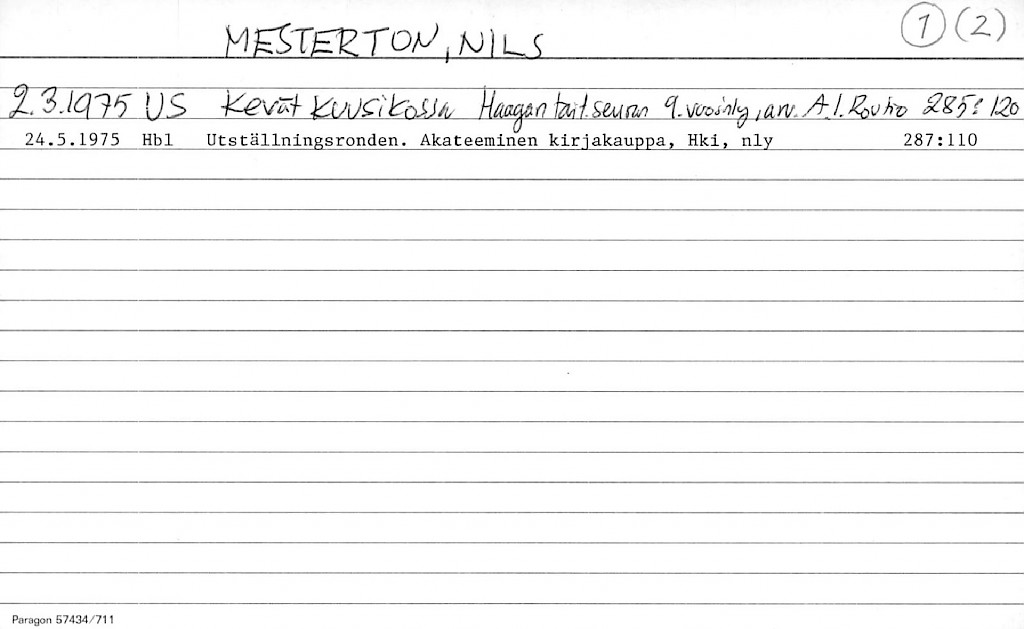 MESTERTON, NILS 1 (2)
2.3.1975 US Kevät Kuusikossa Haagan tait.seuran 9.vuosinly, arv. A.I. Routio 285:120
24.5.1975 Hbl Utställningsronden. Akateeminen kirjakauppa, Hki, nly 287:110
Paragon 57434/711